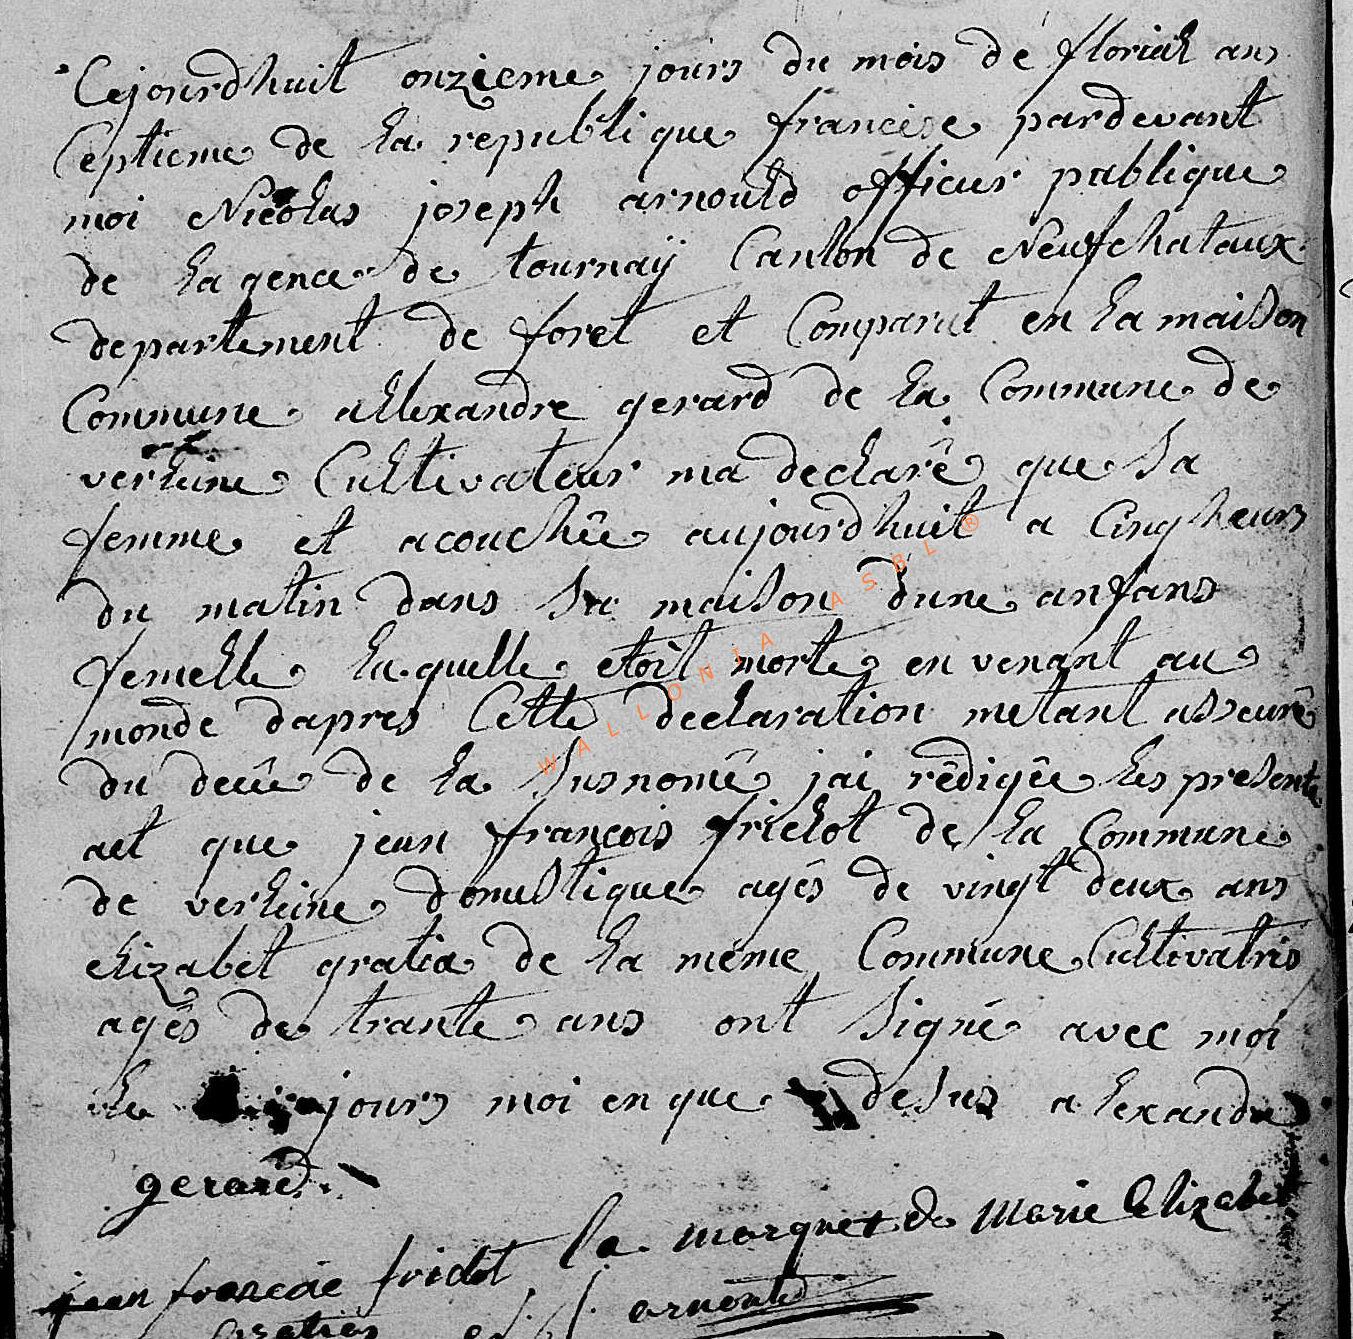 Cejourdhuit onzieme jours du mois de florial ans
Ceptieme de la republique francise pardevant
moi Nicolas joseph arnould officier publique
de lagence de tournaÿ Canton de Neufchataux
departement de foret et Comparut en la maison
Commune allexandre gerard de la Commune de
verlaine Cultivateur ma declaré que sa
femme et acouchée aujourdhuit a Cinq heurs
du matin dans sa maison dune anfans
femelle laquelle etoit morte en venant au
monde dapres Cette declaration metant asseuré
du decée de la susnomé jai rédigée les presente
act que jean françois frichot de la Commune
de verlaine domestique agés de vingt deux ans
elizabet gratia de la meme Commune Cultivatris
agés de trante ans ont signé avec moi
le jours moi en que desus alexandre
gerard
la marque de Marie Elizabet
jean francoie frichot
arnould
WALLONIA ASBL ®